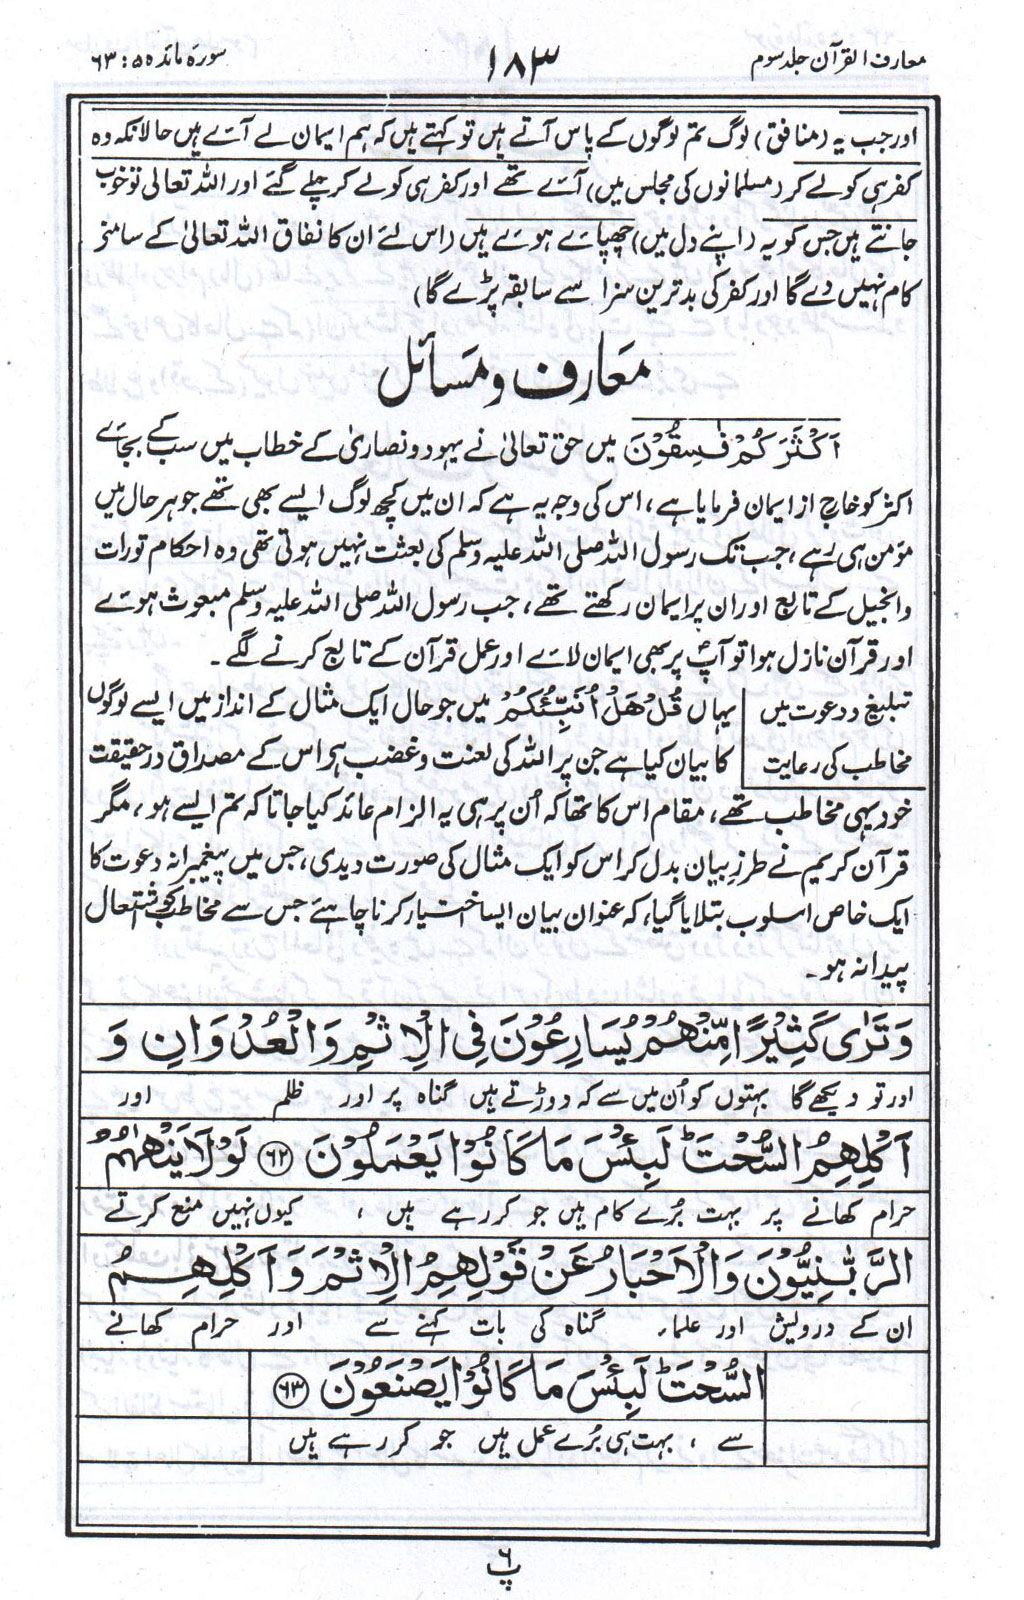 معارف القرآن جلد سوم
۱۸۳
سورۃ مائدہ ۵ : ۶۳
اور جب یہ (منافق) لوگ تم لوگوں کے پاس آتے ہیں تو کہتے ہیں کہ ہم ایمان لے آئے ہیں حالانکہ وہ
کفر ہی کو لے کر (مسلمانوں کی مجلس میں) آئے تھے اور کفر ہی کو لے کر چلے گئے اور اللہ تعالیٰ تو خوب
جانتے ہیں جس کو یہ (اپنے دل میں) چھپائے ہوئے ہیں (اس لئے ان کا نفاق اللہ تعالیٰ کے سامنے
کام نہیں دے گا اور کفر کی بدترین سزا سے سابقہ پڑے گا)
معارف و مسائل
اَكْثَرَكُمْ فٰسِقُوْنَ میں حق تعالیٰ نے یہود و نصاریٰ کے خطاب میں سب کے بجائے
اکثر کو خارج از ایمان فرمایا ہے ، اس کی وجہ یہ ہے کہ ان میں کچھ لوگ ایسے بھی تھے جو ہر حال میں
مؤمن ہی رہے ، جب تک رسول اللہ صلی اللہ علیہ وسلم کی بعثت نہیں ہوئی تھی وہ احکام تورات
و انجیل کے تابع اور ان پر ایمان رکھتے تھے ، جب رسول اللہ صلی اللہ علیہ وسلم مبعوث ہوئے
اور قرآن نازل ہوا تو آپؐ پر بھی ایمان لائے اور عمل قرآن کے تابع کرنے لگے ۔
تبلیغ و دعوت میں
مخاطب کی رعایت
یہاں قُلْ هَلْ اُنَبِّئُكُمْ میں جو حال ایک مثال کے انداز میں ایسے لوگوں
کا بیان کیا ہے جن پر اللہ کی لعنت و غضب ہے اس کے مصداق در حقیقت
خود یہی مخاطب تھے ، مقام اس کا تھا کہ اُن پر ہی یہ الزام عائد کیا جاتا کہ تم ایسے ہو ، مگر
قرآن کریم نے طرزِ بیان بدل کر اس کو ایک مثال کی صورت دیدی ، جس میں پیغمبرانہ دعوت کا
ایک خاص اسلوب بتلایا گیا ، کہ عنوان بیان ایسا اختیار کرنا چاہئے جس سے مخاطب کو اشتعال
پیدا نہ ہو ۔
وَ تَرٰى كَثِيْرًا مِّنْهُمْ يُسَارِعُوْنَ فِى الْاِثْمِ وَ الْعُدْوَانِ وَ
اور تو دیکھے گا بہتوں کو اُن میں سے کہ دوڑتے ہیں گناہ پر اور ظلم اور
اَكْلِهِمُ السُّحْتَ ؕ لَبِئْسَ مَا كَانُوْا يَعْمَلُوْنَ ﴿۶۲﴾ لَوْ لَا يَنْهٰهُمُ
حرام کھانے پر بہت بُرے کام ہیں جو کر رہے ہیں ، کیوں نہیں منع کرتے
الرَّبّٰنِيُّوْنَ وَ الْاَحْبَارُ عَنْ قَوْلِهِمُ الْاِثْمَ وَ اَكْلِهِمُ
ان کے درویش اور علماء گناہ کی بات کہنے سے اور حرام کھانے
السُّحْتَ ؕ لَبِئْسَ مَا كَانُوْا يَصْنَعُوْنَ ﴿۶۳﴾
سے ، بہت ہی بُرے عمل ہیں جو کر رہے ہیں
۶
پ